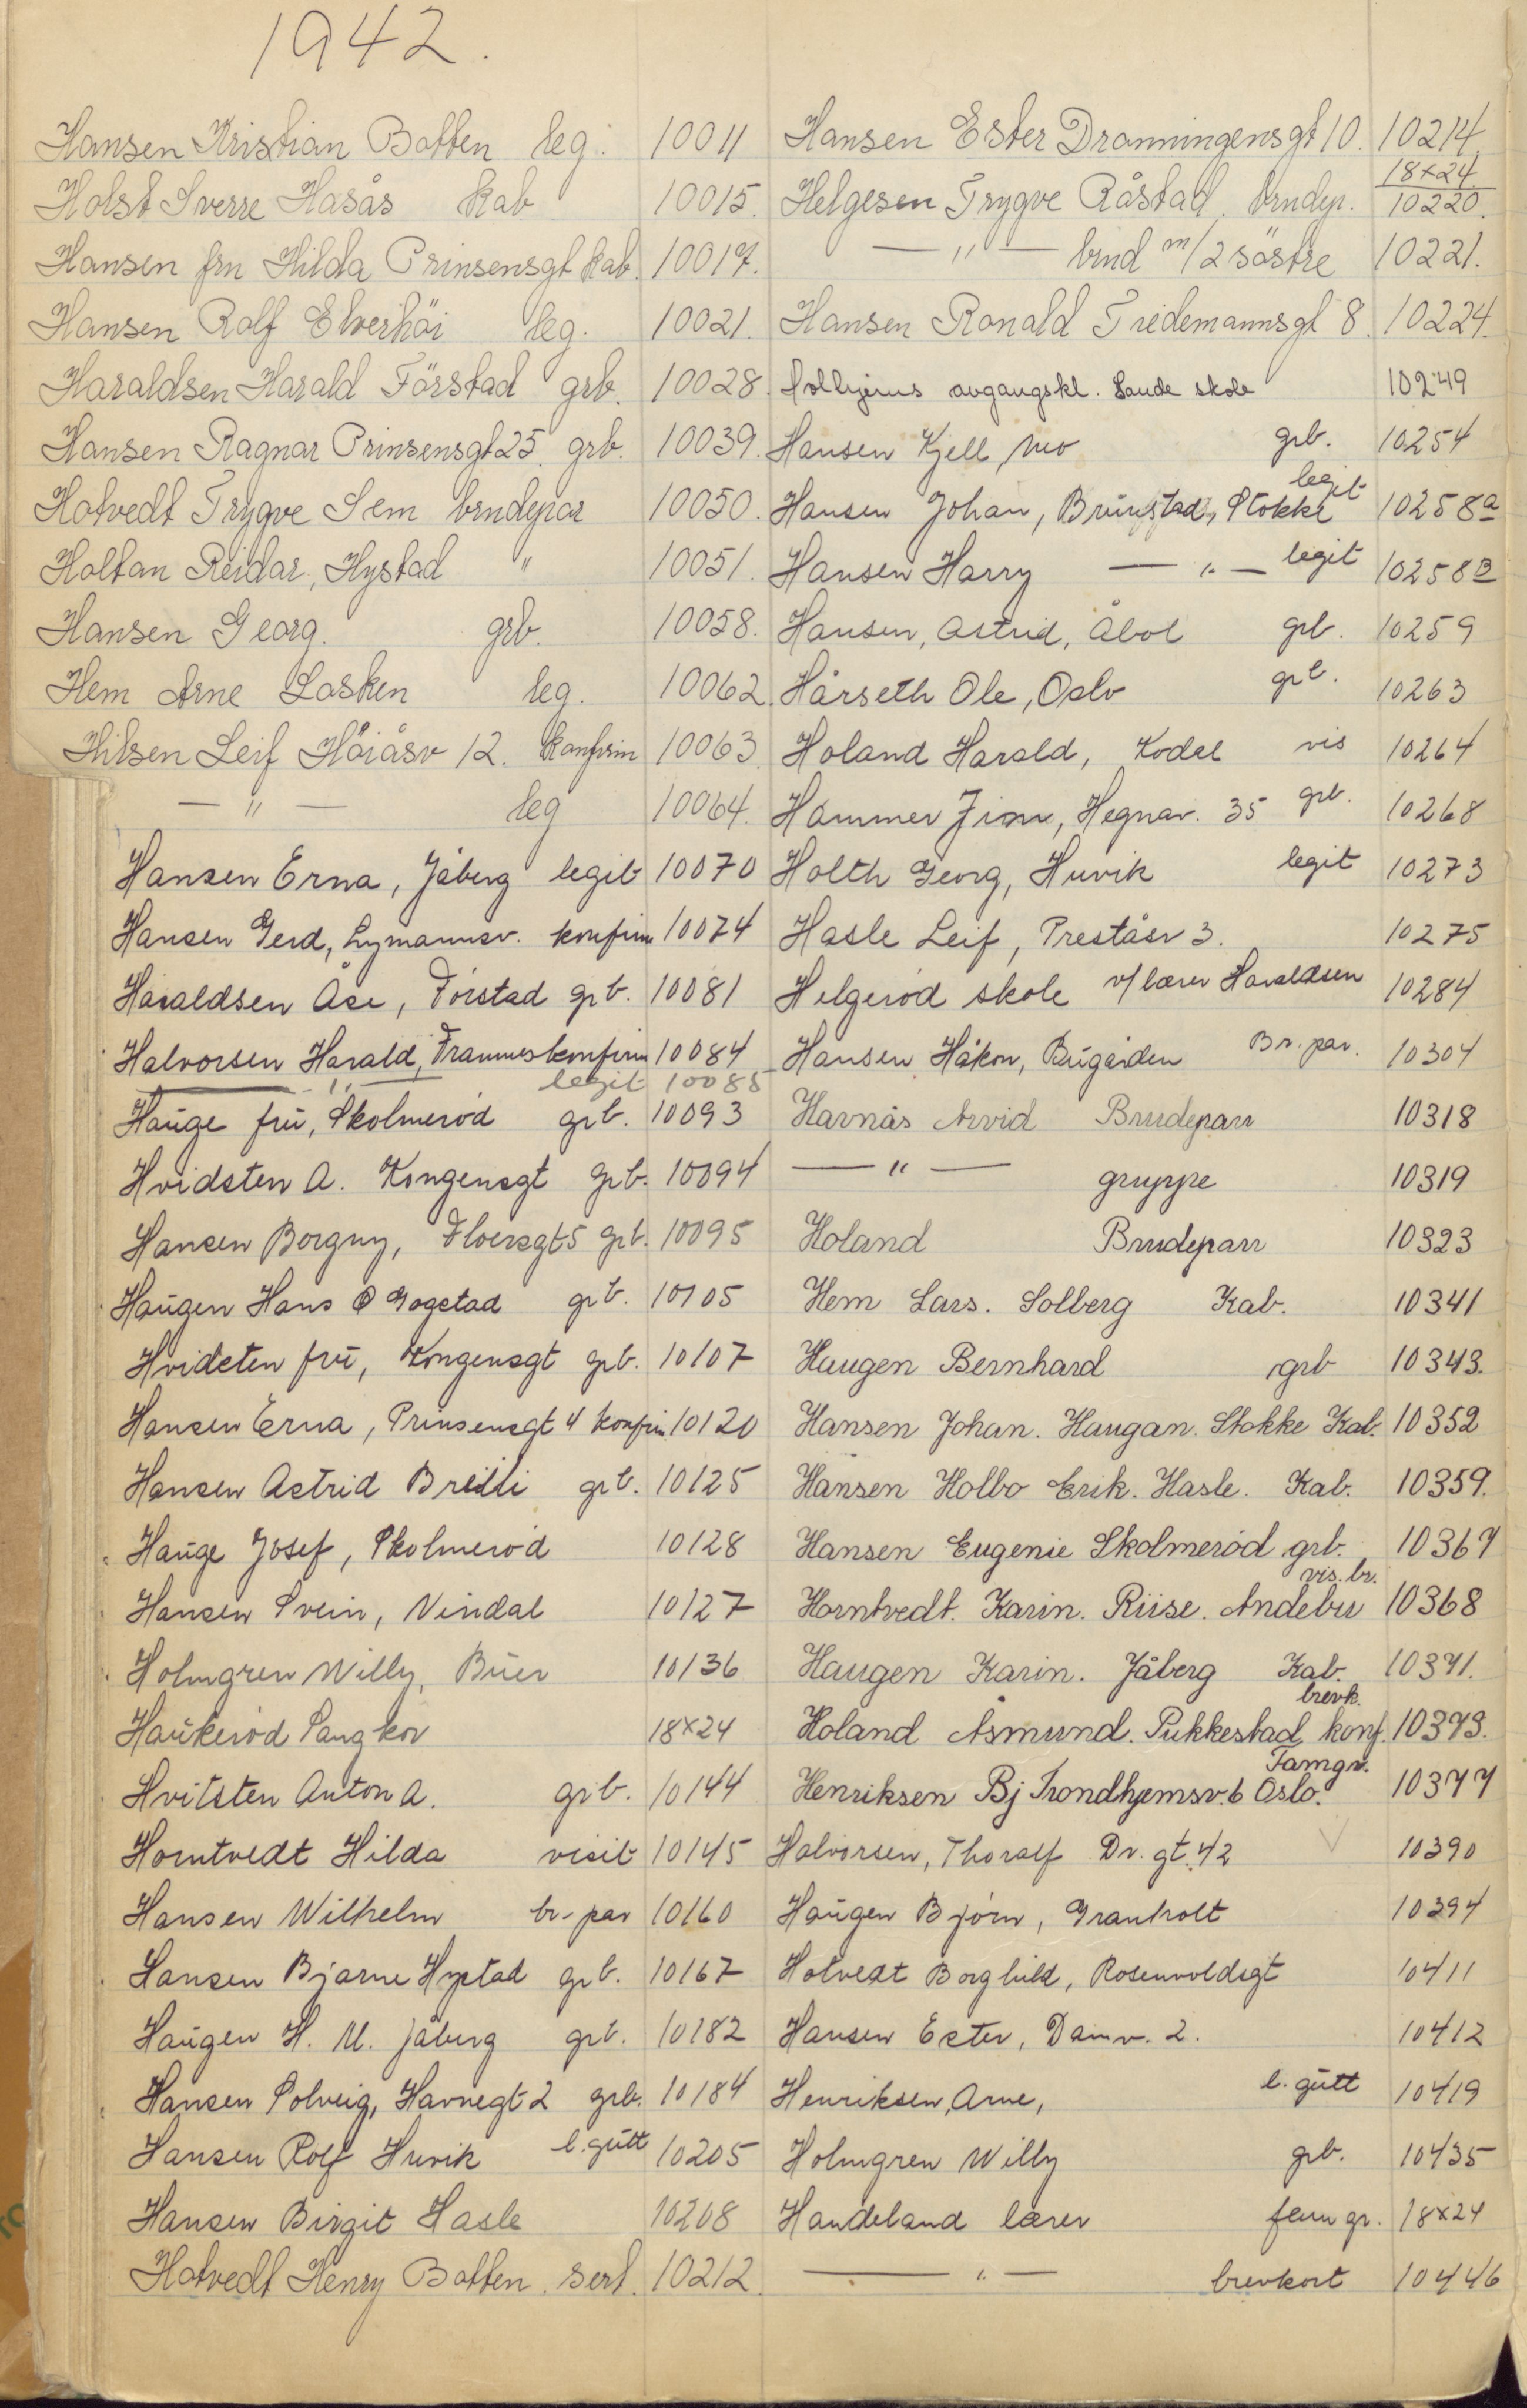 1942.
Hansen Kristian Botten leg. 10011
Holst Sverre Hasås kab 10015.
Hansen fru Hilda Prinsensgt kab. 10017.
Hansen Rolf Elverhöi leg. 10021.
Haraldsen Harald Förstad grb. 10028.
Hansen Ragnar Prinsensgt 25. grb. 10039.
Hotvedt Trygve Sem brudepar 10050.
Holtan Reidar, Hystad " 10051.
Hansen Georg. grb. 10058.
Hem Arne Lasken leg. 10062.
Hilsen Leif Höiåsv 12. konfirm 10063.
— " — leg 10064.
Hansen Erna, Jåberg legit 10070
Hansen Gerd, Lymannsv. konfirm 10074
Haraldsen Åse, Förstad grb. 10081
Halvorsen Harald, Framnes konfirm 10084
— " — legit 10085
Hauge frū, Skolmeröd grb. 10093
Hvidsten A. Kongensgt grb. 10094
Hansen Borgny, Floersgt 5 grb. 10095
Haūgen Hans Ø Gogstad grb. 10105
Hvidsten frū, Kongensgt grb. 10107
Hansen Erna, Prinsensgt 4 konfirm. 10120
Hansen Astrid Breili grb. 10125
Haūge Josef, Skolmeröd 10128
Hansen Svein, Vindal 10127
Holmgren Willy, Būer 10136
Haūkeröd Sangkor 18x24
Hvitsten Anton A. grb. 10144
Horntvedt Hilda visit 10145
Hansen Wilhelm br. par 10160
Hansen Bjarne Hystad grb. 10167
Haūgen H. M. Jåberg grb. 10182
Hansen Solveig, Havnegt 2 grb. 10184
Hansen Rolf Huvik l. gūtt 10205
Hansen Birgit Hasle 10208
Hotvedt Henry Botten. sert. 10212.
Hansen Ester Dronningensgt 10. 10214.
18x24
Helgesen Trygve Råstad. brudep. 10220.
— " — brud m/2 söstre 10221.
Hansen Ronald Tidemannsgt 8. 10224.
avgangskl. Sande skole 10249
Hansen Kjell, Mo grb. 10254
Hansen Johan, Brunstad, Stokke legit 10258a
Hansen Harry — " — legit 10258B
Hansen, Astrid, Åbol grb. 10259
Hårseth Ole, Oslo grb. 10263
Holand Harald, Kodal vis 10264
Hammer Finn, Hegnav. 35 grb. 10268
Holth Georg, Huvik legit 10273
Hasle Leif, Preståsv 3. 10275
Helgeröd skole v/ lærer Haraldsen 10284
Hansen Håkon, Būgården Br. par. 10304
Havnås Arvid Brudeparr 10318
— " — gruppe 10319
Holand Brudeparr 10323
Hem Lars. Solberg Kab. 10341
Haugen Bernhard grb 10343.
Hansen Johan. Haugan. Stokke Kab. 10352
Hansen Holbo Erik. Hasle. Kab. 10359.
Hansen Eugenie Skolmeröd grb. 10367
vis. br.
Horntvedt. Karin. Riise. Andebu 10368
Haugen Karin. Jåberg Kab. 10371.
brevk.
Holand Åsmund. Pukkestad konf. 10373.
Famgr.
Henriksen Bj Trondhjemsv. 6 Oslo. 10377
Halvorsen, Thoralf Dr. gt. 42 10390
Haūgen Björn, Granholt 10394
Hotvedt Borghild, Rosenvoldsgt 10411
Hansen Ester, Damv. 2. 10412
Henriksen, Arne, l. gūtt 10419
Holmgren Willy grb. 10435
Handeland lærer fam gr. 18x24
— " — brevkort 10446